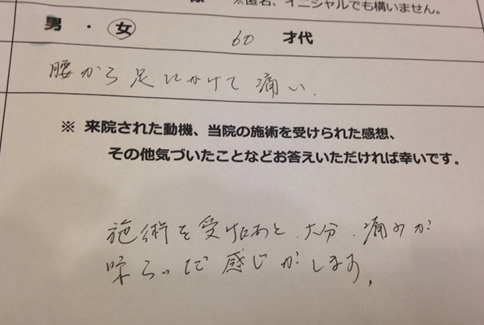 ※匿名、イニシャルでも構いません。
男 ・ 女 60 才代
腰から足にかけて痛い.
※ 来院された動機、当院の施術を受けられた感想、
その他気づいたことなどお答えいただければ幸いです。
施術を受けたあと、大分、痛みが
和らいだ感じがします。